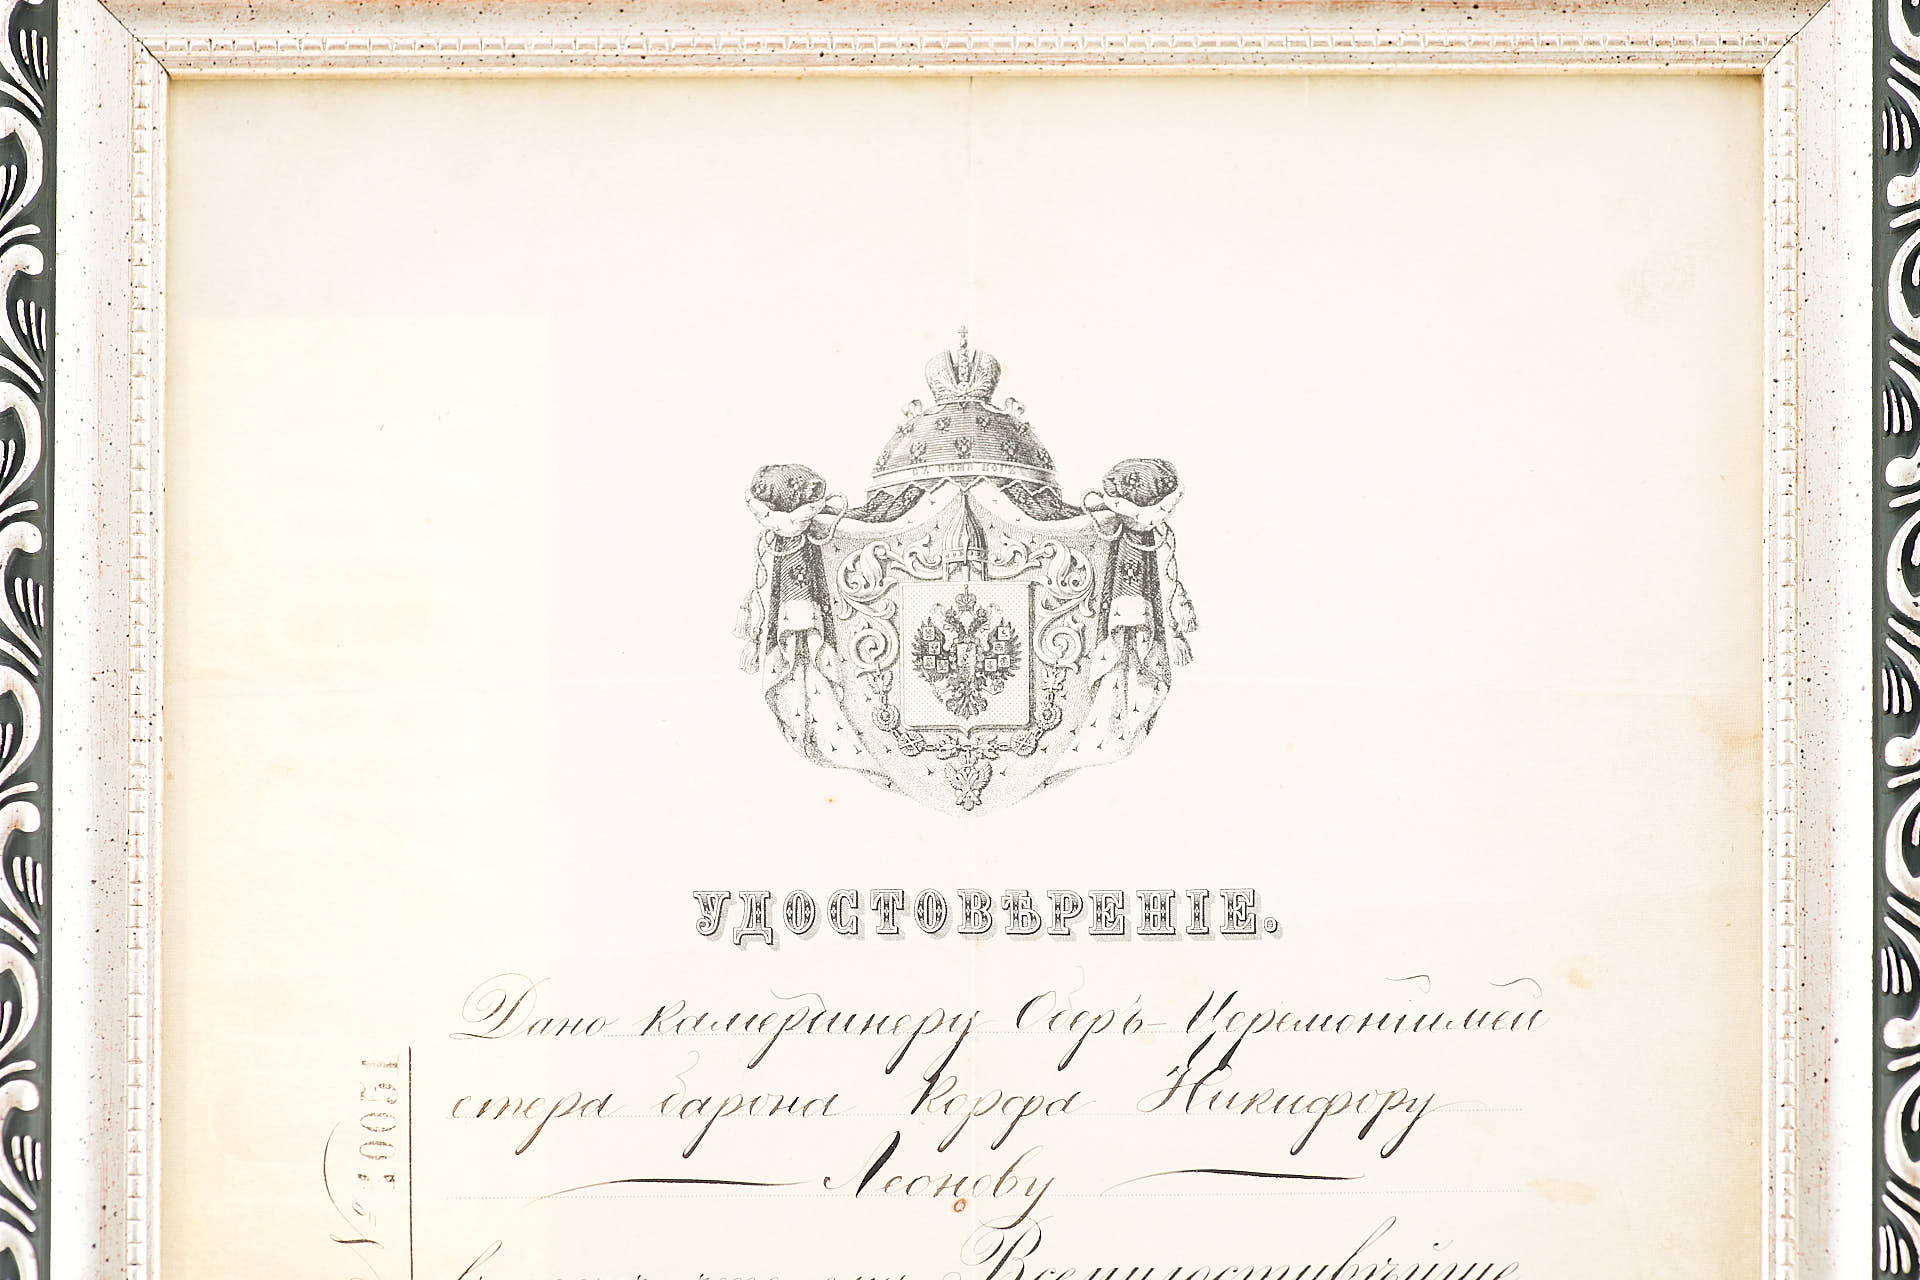 СЪ НАМИ БОГЪ
УДОСТОВѢРЕНІЕ.
Дано камердинеру Оберъ-Церемоніймей
стера барона Корфа Никифору
Леонову
Всемилостивѣйше
№